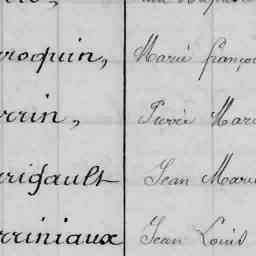 rroquin, Marie françoi
rrin, Pierre Mari
rrigault Jean Marie
rriniaux Jean Louis